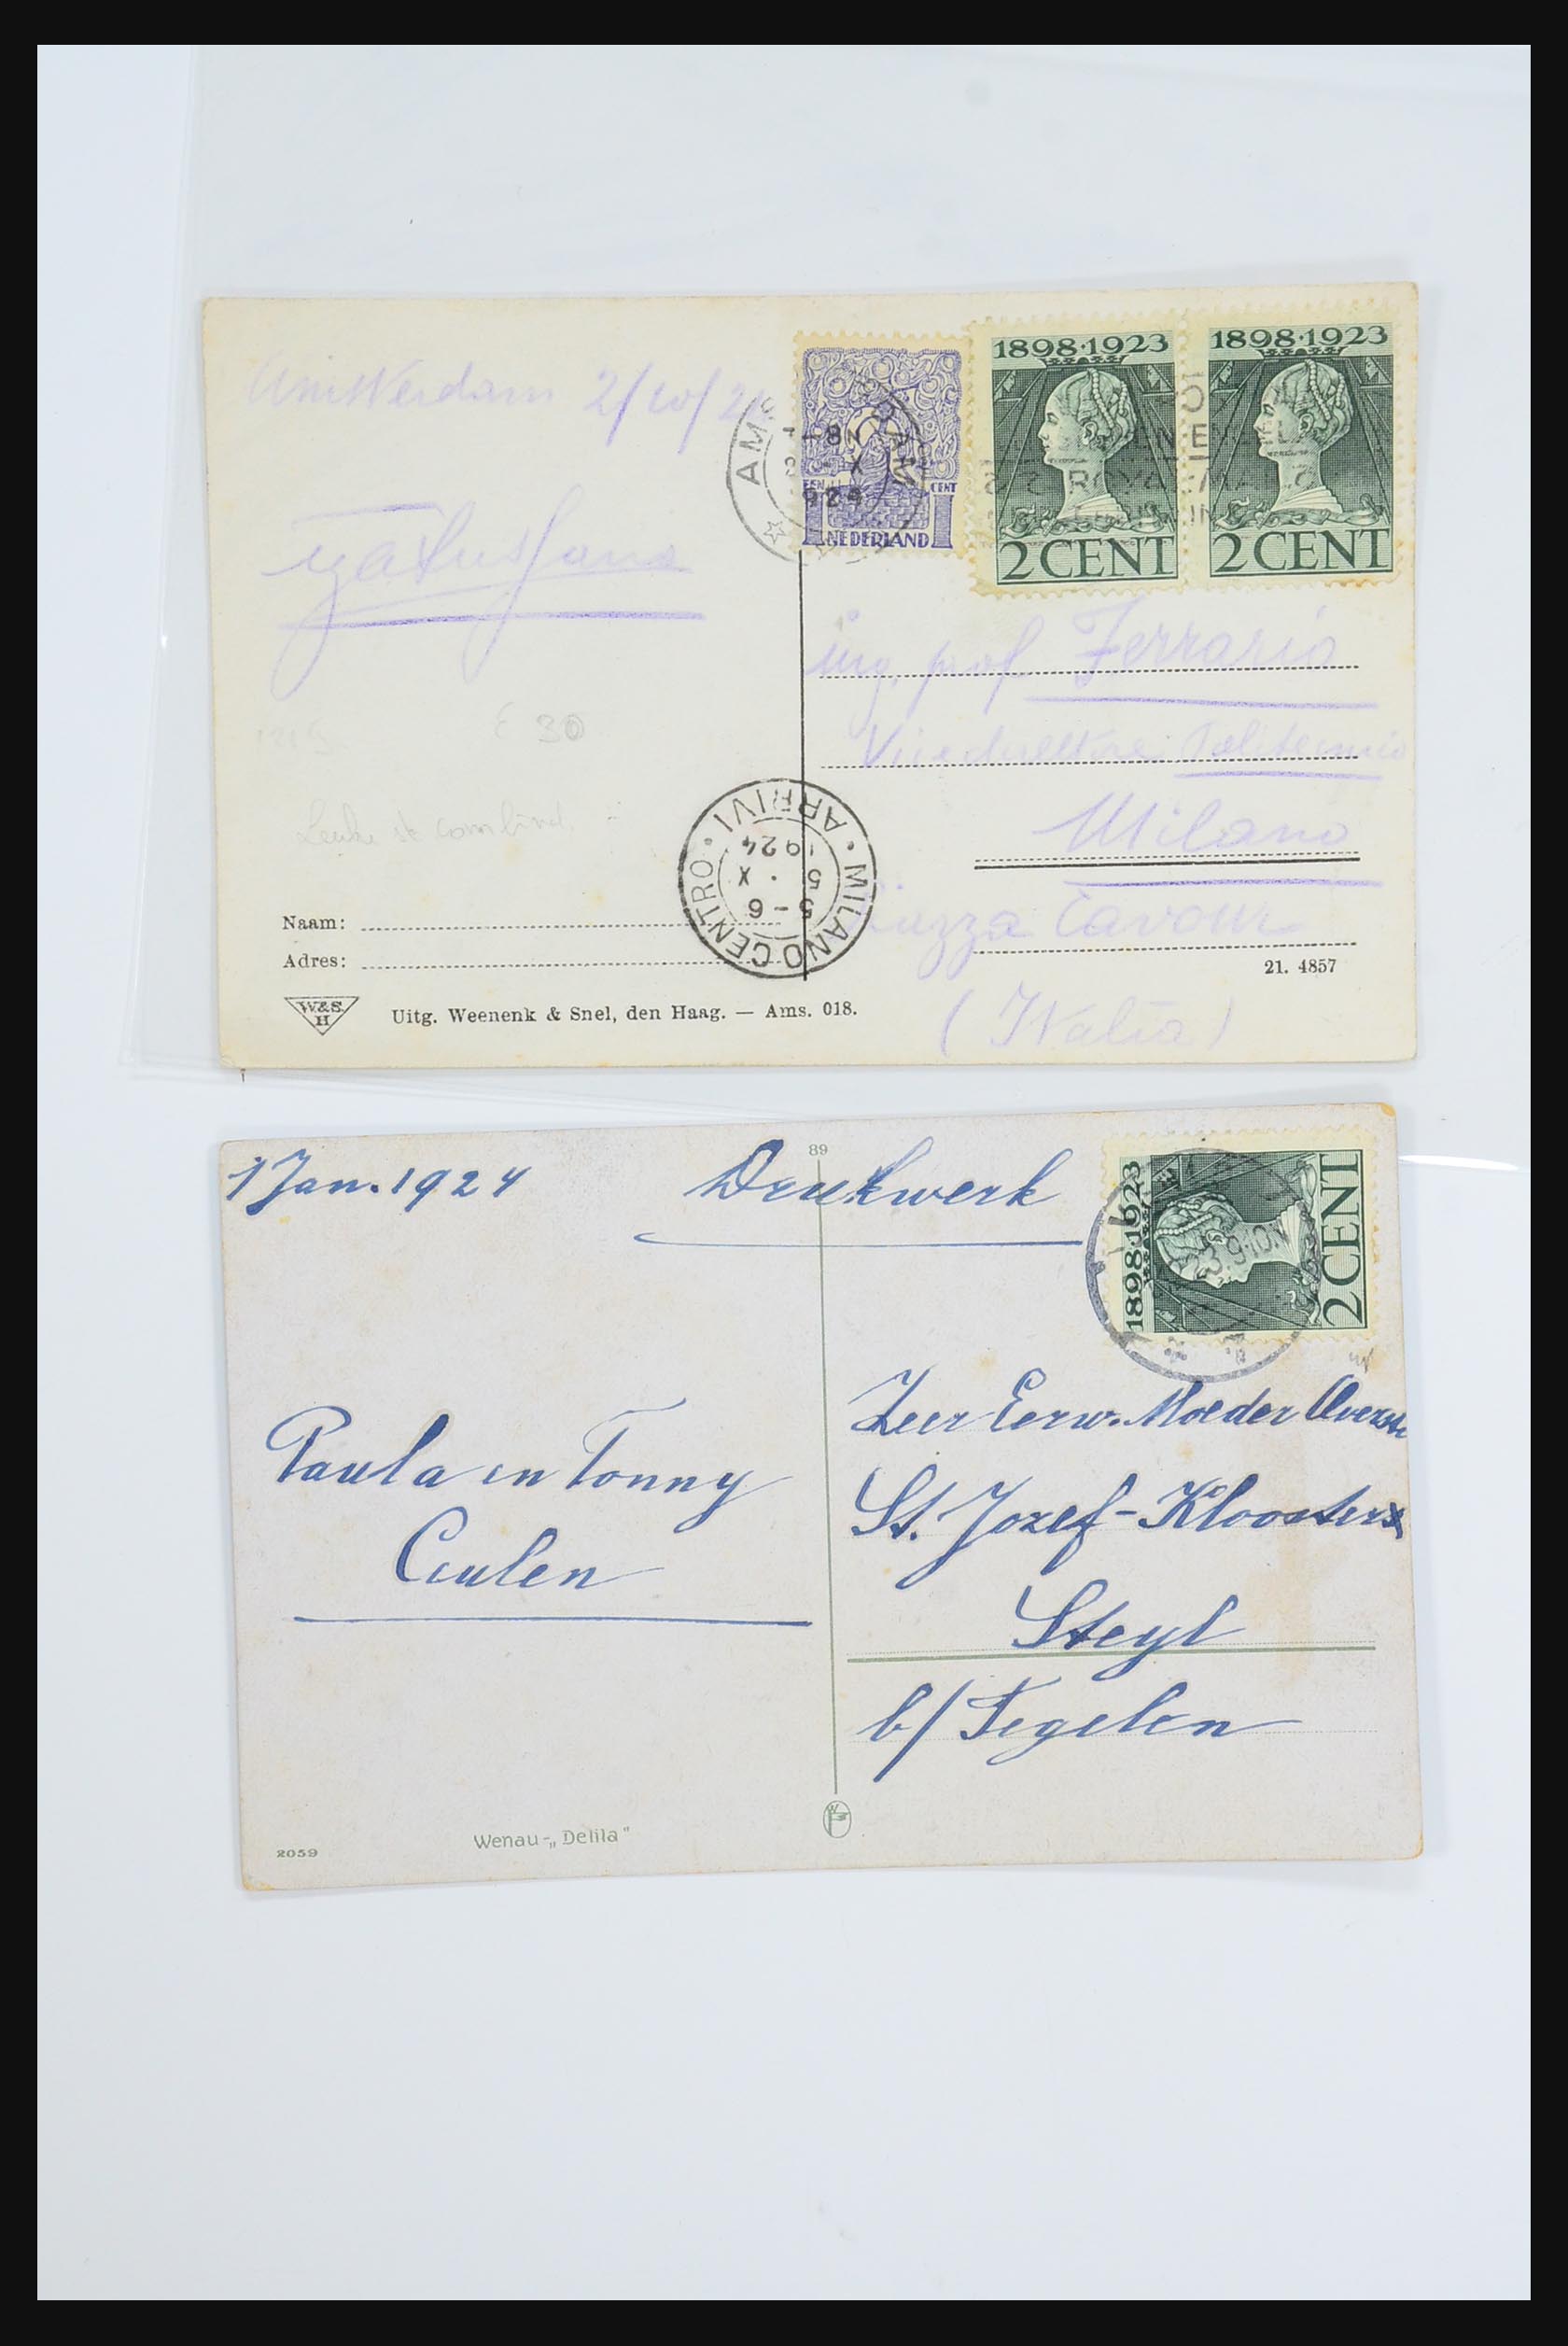 Amsterdam 2/10/24
1898·1923
1898·1923
EEN CENT
1 NEDERLAND 1
2 CENT
2 CENT
AMSTERDAM
-8N
X
1924
Ing. prof. Ferrario
Vicedirettore Politecnico
Milano
Piazza Cavour
(Italia)
€ 30
Leuke combinat.
MILANO CENTRO · ARRIVI ·
5-6
5 · X
1924
Naam:
Adres:
21. 4857
W&S.
H
Uitg. Weenenk & Snel, den Haag. — Ams. 018.
1 Jan. 1924
89
Drukwerk
1898·1923
2 CENT
9-10N
Zeer Eerw. Moeder Overste
St. Jozef-Klooster
Steyl
b/ Tegelen
Paula en Tonny
Ceulen
2059
Wenau-„Delila"